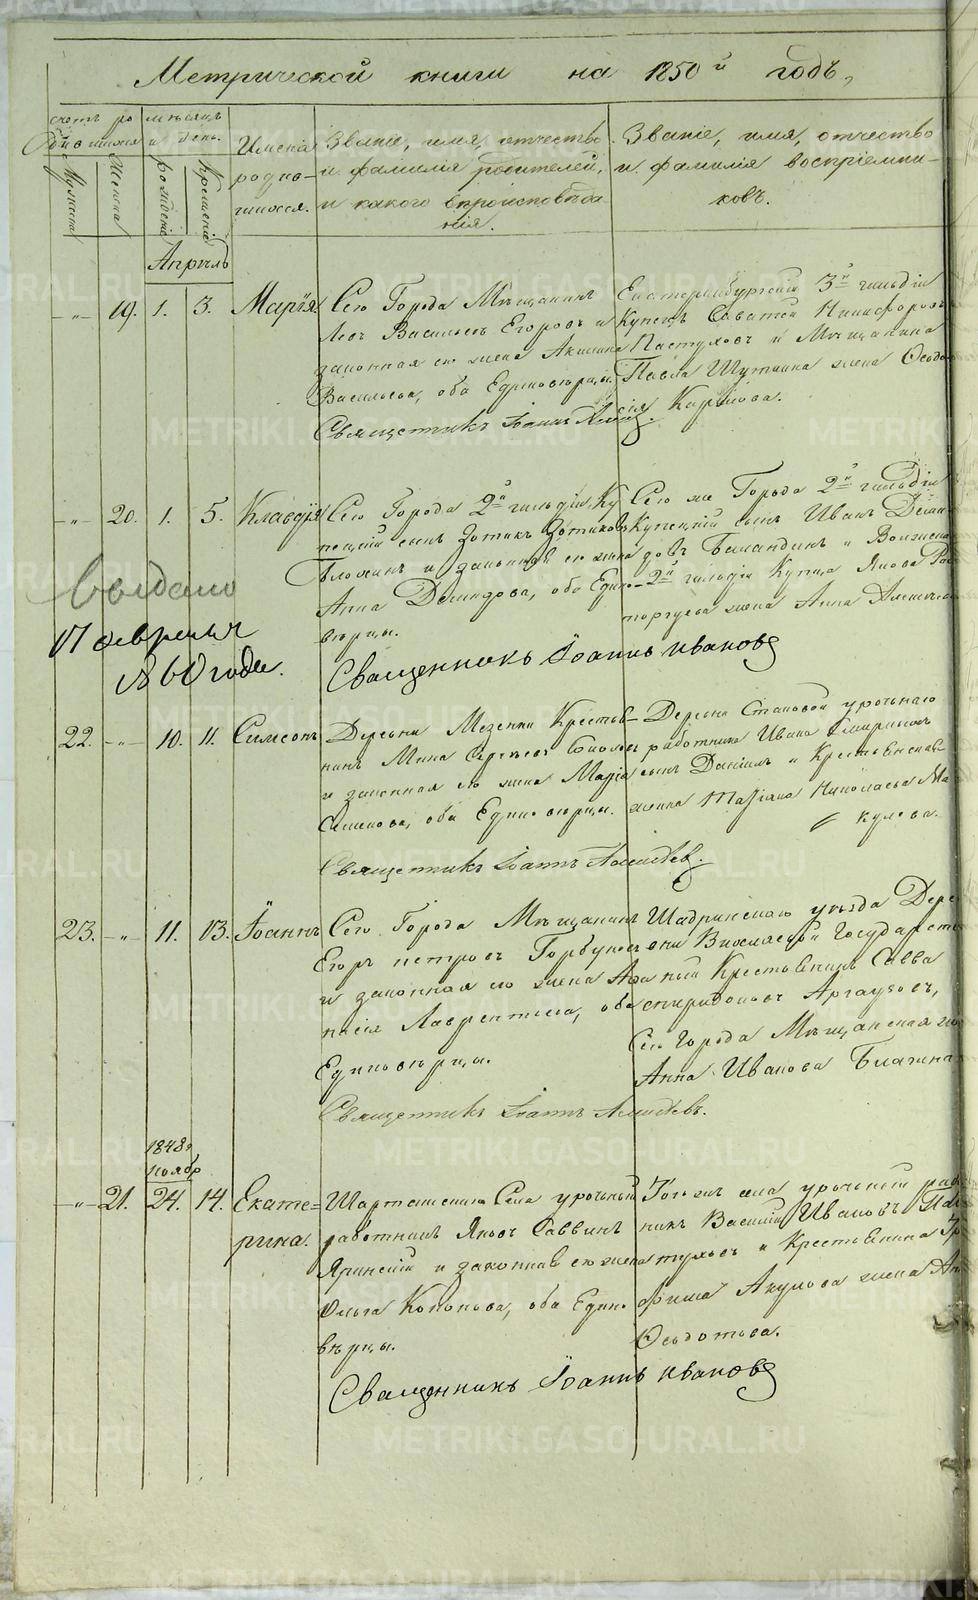 Метрической книги на 1850й годъ,
счетъ ро
дившихся
мѣсяцъ
и день.
Мужска
Женска
рожденіе
крещеніе
Имена
родив-
шихся.
Званіе, имя, отчество
и фамилія родителей,
и какого вѣроисповѣда
нія.
Званіе, имя, отчество
и фамилія воспріемни-
ковъ.
Апрѣль
19. 1. 3. Марія.
Сего Города Мѣщанинъ
Левъ Васильевъ Егоровъ и
законная его жена Акилина
Васильева, оба Единовѣрцы.
Священникъ Іоаннъ
Екатеринбургскій 3й гильдіи
Купецъ Саватей Никифоровъ
Пастуховъ и Мѣщанина
Павла Шуткина жена Ѳеодо
сія Карпова.
20. 1. 5. Клавдія
Сего Города 2й гильдіи Ку
пецкій сынъ Зотикъ Зотиковъ
Блохинъ и законная его жена
Анна Демидова, оба Едино-
вѣрцы.
Священникъ Іоаннъ Ивановъ
Сего же Города 2й гильдіи
Купецкій сынъ Иванъ Деми
довъ Баландинъ и
2й гильдіи Купца Якова Рас
торгуева жена Анна
Выдано
17 февраля
1860 года.
22. 10. 11. Симеонъ
Деревни Мезенки Крестья-
нинъ Мина Соколовъ
и законная его жена Марія
Семенова, оба Единовѣрцы.
Священникъ Іоаннъ
Деревни Становой урочнаго
работника Ивана Смирныхъ
сынъ Даніилъ и Крестьянская
жена Маріана Николаева Ма
кулова.
23. 11. 13. Іоаннъ
Сего Города Мѣщанинъ
Егоръ Петровъ Горбуновъ
и законная его жена Аѳа
насія Лаврентьева, оба
Единовѣрцы.
Священникъ Іоаннъ
Шадринскаго уѣзда Дере
вни Государствен
ный Крестьянинъ Савва
Спиридоновъ Аргаузовъ,
Сего Города Мѣщанская
Анна Иванова Блохина
1848го
Ноябр
21. 24. 14. Екате=
рина.
Шарташскаго Села урочный
работникъ Яковъ Саввинъ
Яринскій и законная его жена
Ольга Кононова, оба Едино
вѣрцы.
Священникъ Іоаннъ Ивановъ
Тогожъ села урочный рабо
никъ Василій Ивановъ Пас
туховъ и Крестьянина Тро
фима Акулова жена Ан
Ѳедотова.
METRIKI.GASO-URAL.RU